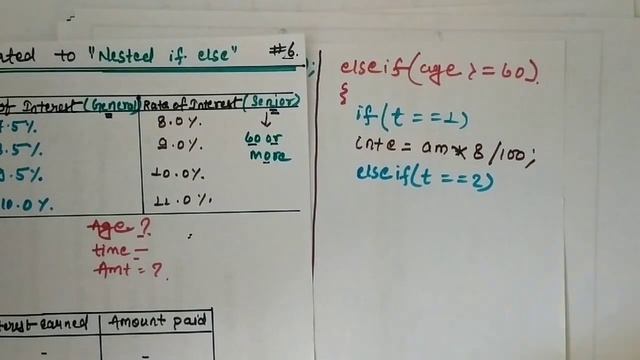 ated to "Nested if else" #6.
of Interest (General) Rate of Interest (Senior)
7.5% 8.0%
8.5% 9.0%
9.5% 10.0%
10.0% 11.0%
60 or
more
Age ?
time –
Amt = ?
terest earned Amount paid
- -
);
else if (age >= 60)
{
if (t == 1)
inte = am * 8 / 100;
else if (t == 2)